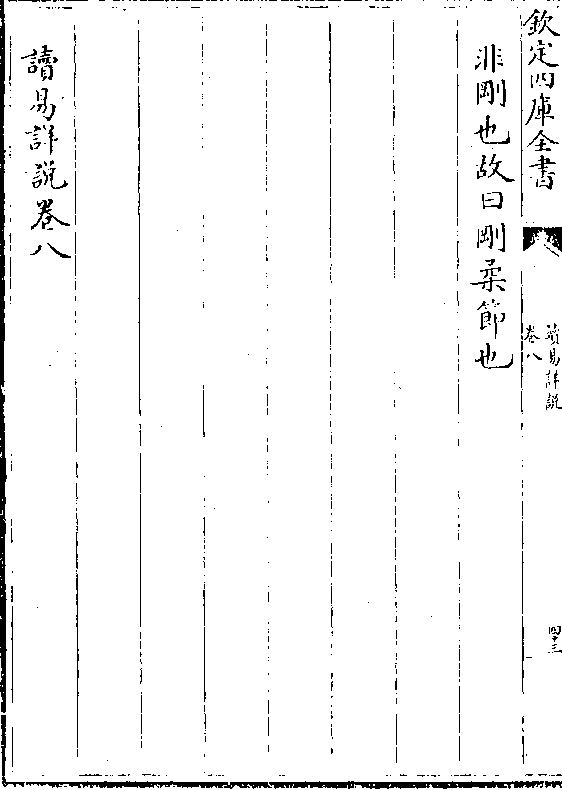 欽定四庫全書
讀易詳說
卷八
四十三
非剛也故曰剛柔節也
讀易詳說卷八